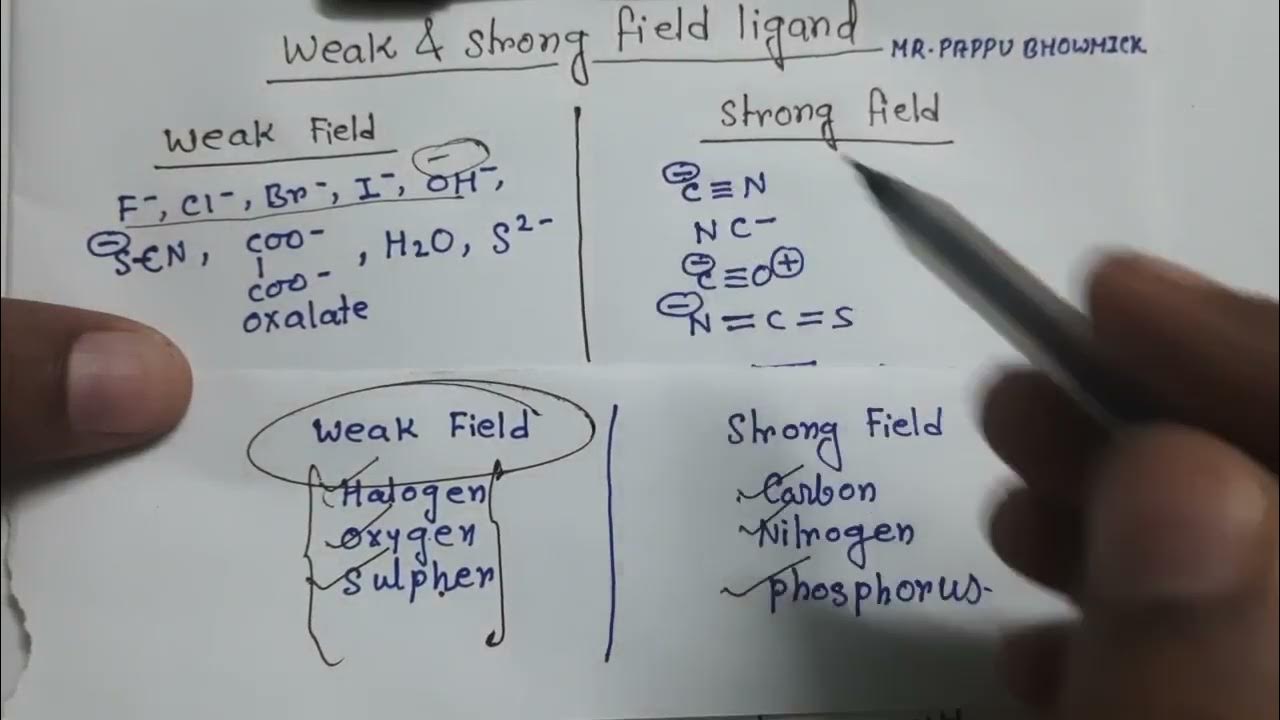 Weak & Strong field ligand
MR. PAPPU BHOWMICK
Weak Field
F⁻, Cl⁻, Br⁻, I⁻, OH⁻,
⊖SCN, COO⁻, H2O, S²⁻
COO⁻
oxalate
Strong field
⊖C≡N
NC⁻
⊖C≡O⊕
⊖N=C=S
Weak Field
Halogen
Oxygen
Sulpher
Strong Field
Carbon
Nitrogen
Phosphorus